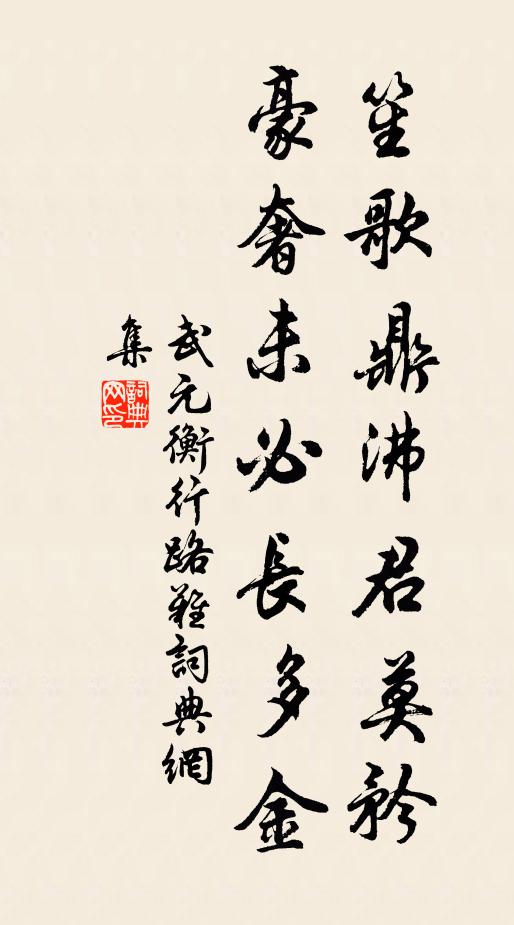 笙歌鼎沸君莫矜
豪奢未必長多金
武元衡行路難詞典網
集
詞典网印